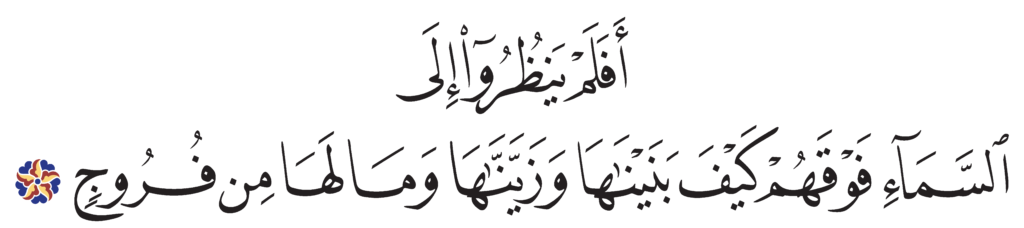 أَفَلَمْ يَنظُرُوٓا۟ إِلَى
ٱلسَّمَآءِ فَوْقَهُمْ كَيْفَ بَنَيْنَٰهَا وَزَيَّنَّٰهَا وَمَا لَهَا مِن فُرُوجٍ